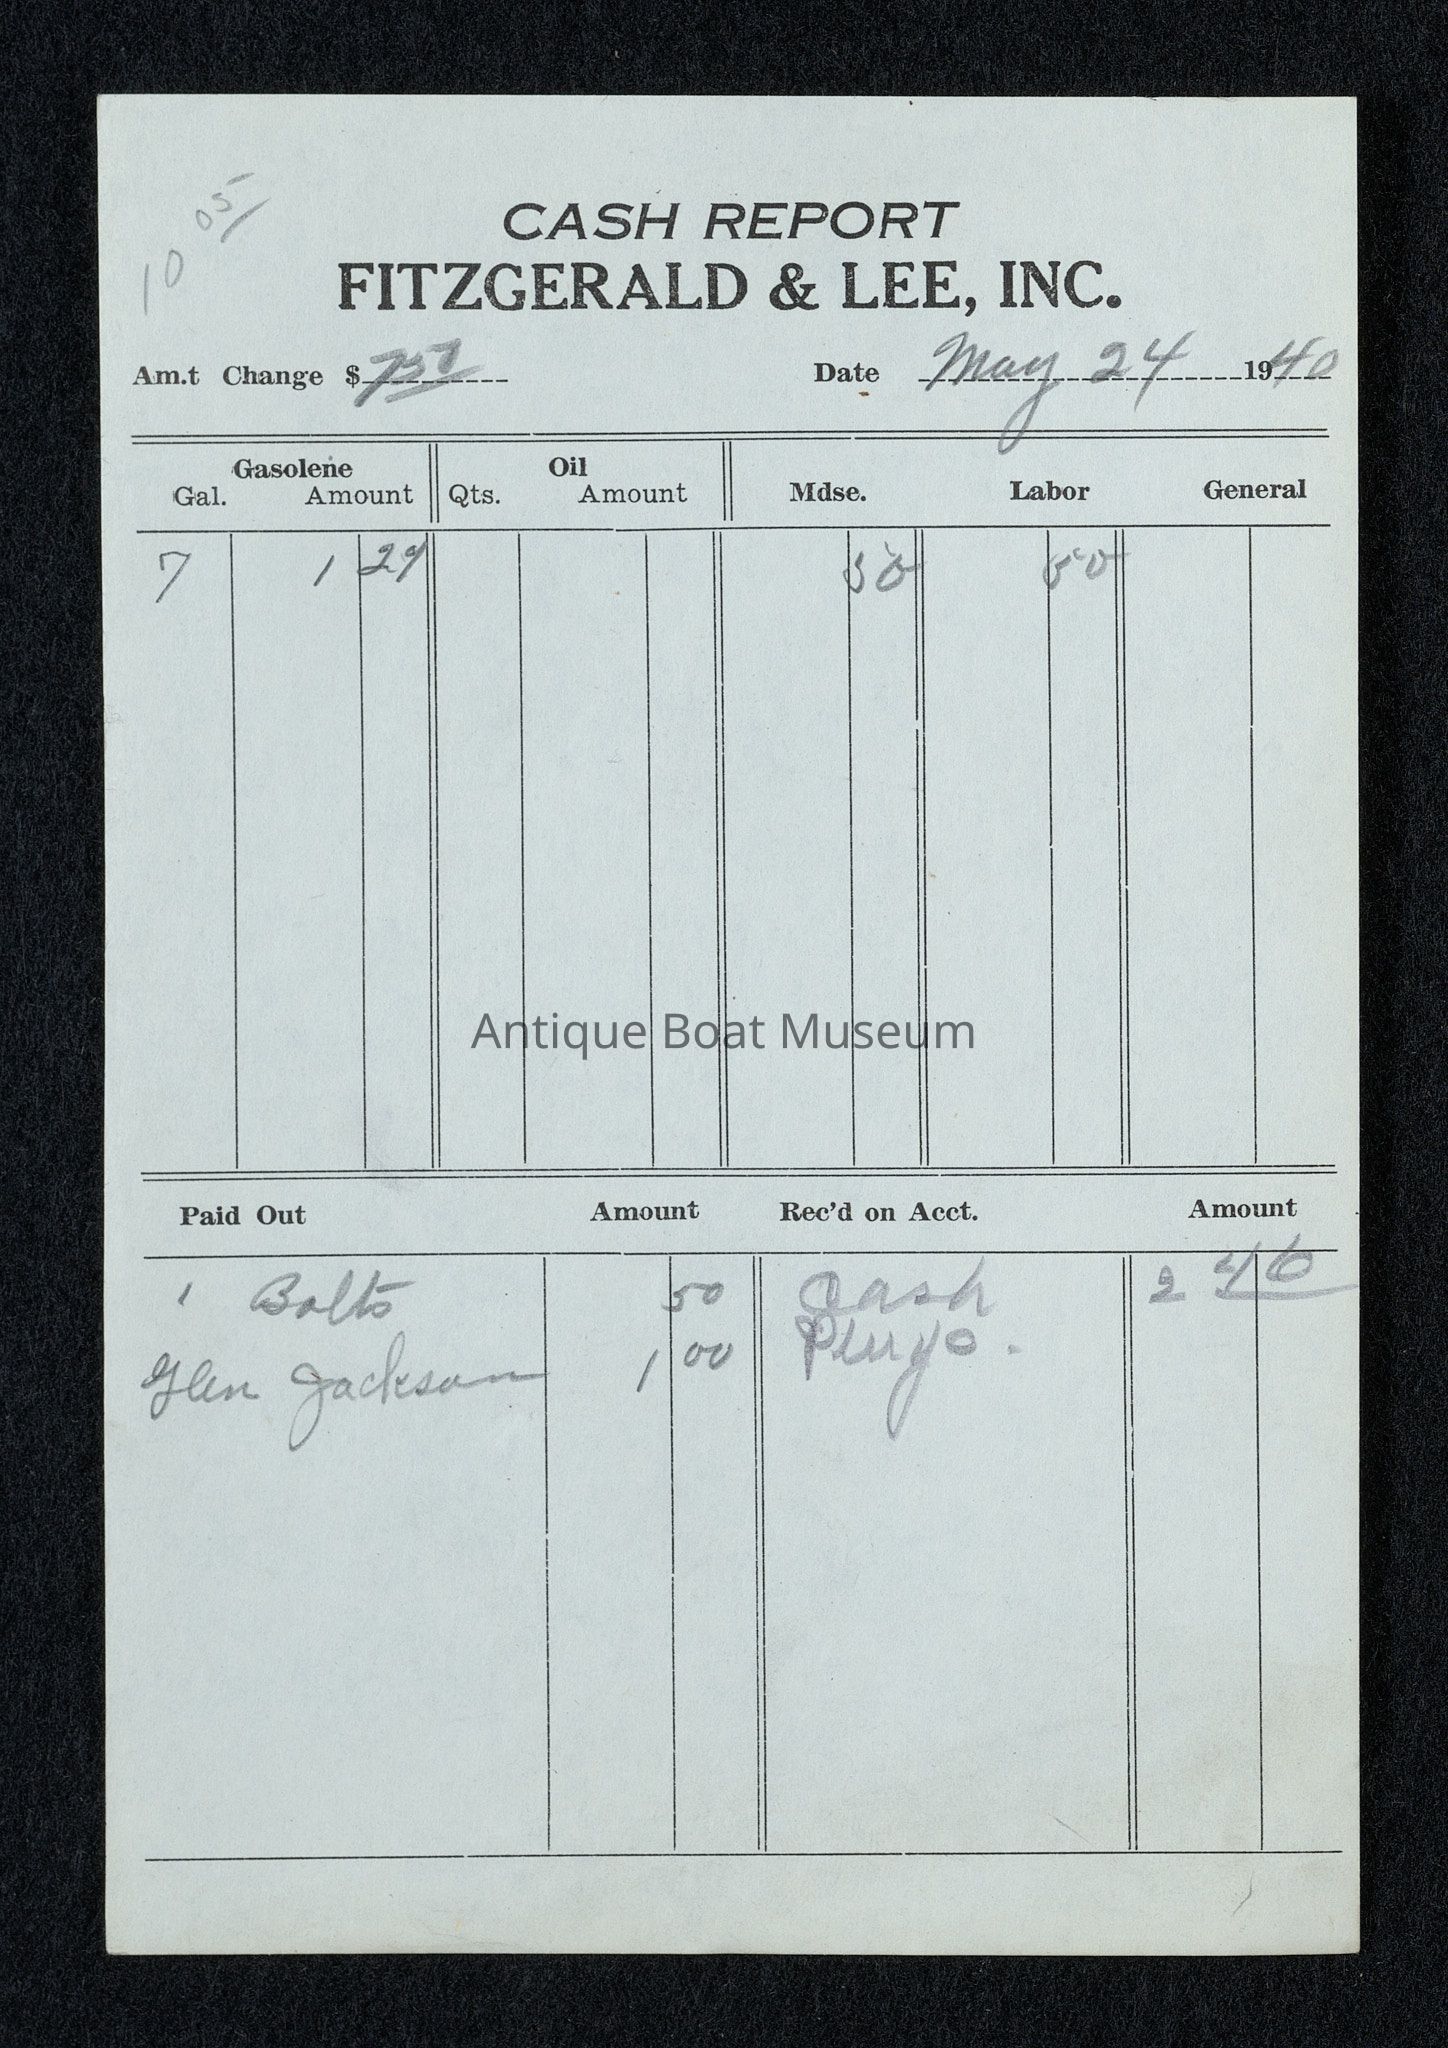 10 05/
CASH REPORT
FITZGERALD & LEE, INC.
Am.t Change $ 7 50 Date May 24 1940
Gasolene Oil
Gal. Amount Qts. Amount Mdse. Labor General
7 1 29 50 50
Antique Boat Museum
Paid Out Amount Rec'd on Acct. Amount
1 Bolts 50 Cash 2 46
Glen Jackson 1 00